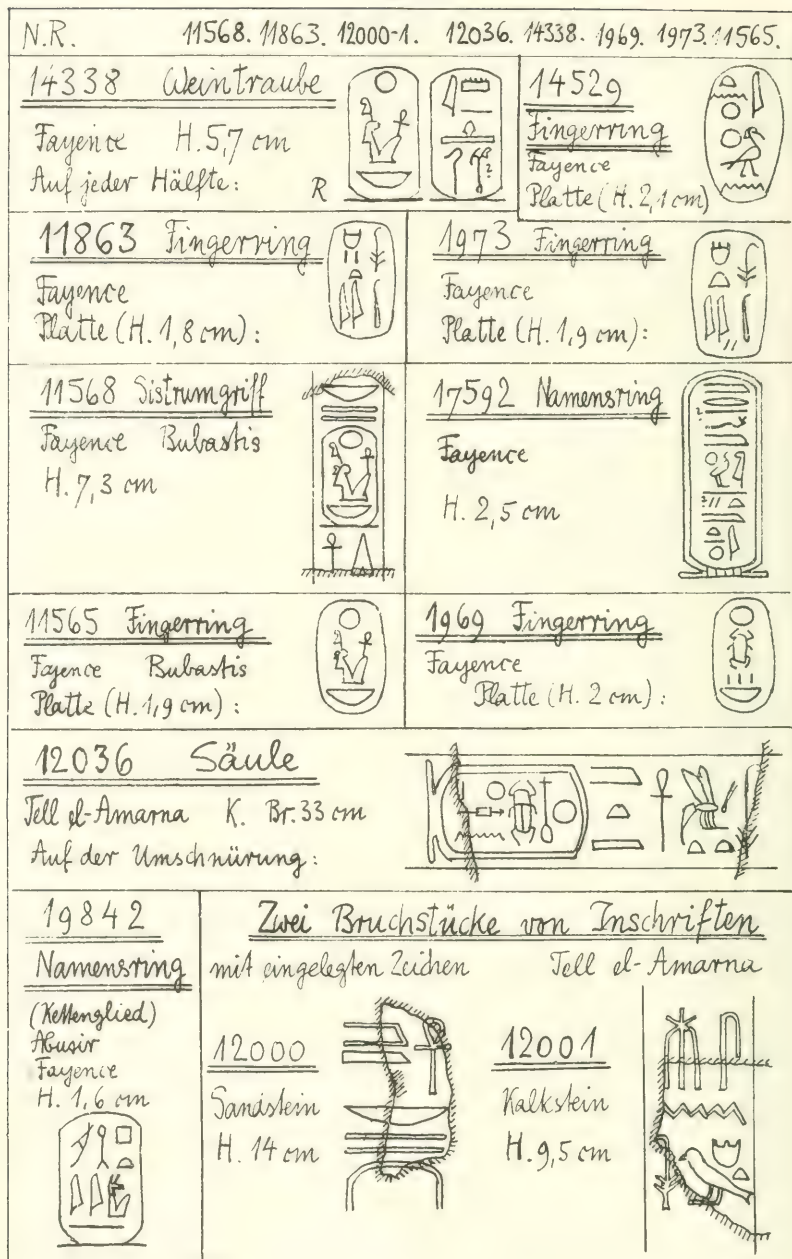 N.R. 11568. 11863. 12000-1. 12036. 14338. 1969. 1973. 11565.
14338 Weintraube
Fayence H. 5,7 cm
Auf jeder Hälfte: R
14529
Fingerring
Fayence
Platte (H. 2,1 cm)
11863 Fingerring
Fayence
Platte (H. 1,8 cm):
1973 Fingerring
Fayence
Platte (H. 1,9 cm):
11568 Sistrumgriff
Fayence Bubastis
H. 7,3 cm
17592 Namensring
Fayence
H. 2,5 cm
11565 Fingerring
Fayence Bubastis
Platte (H. 1,9 cm):
1969 Fingerring
Fayence
Platte (H. 2 cm):
12036 Säule
Tell el-Amarna K. Br. 33 cm
Auf der Umschnürung:
19842
Namensring
(Kettenglied)
Abusir
Fayence
H. 1,6 cm
Zwei Bruchstücke von Inschriften
mit eingelegten Zeichen Tell el-Amarna
12000
Sandstein
H. 14 cm
12001
Kalkstein
H. 9,5 cm